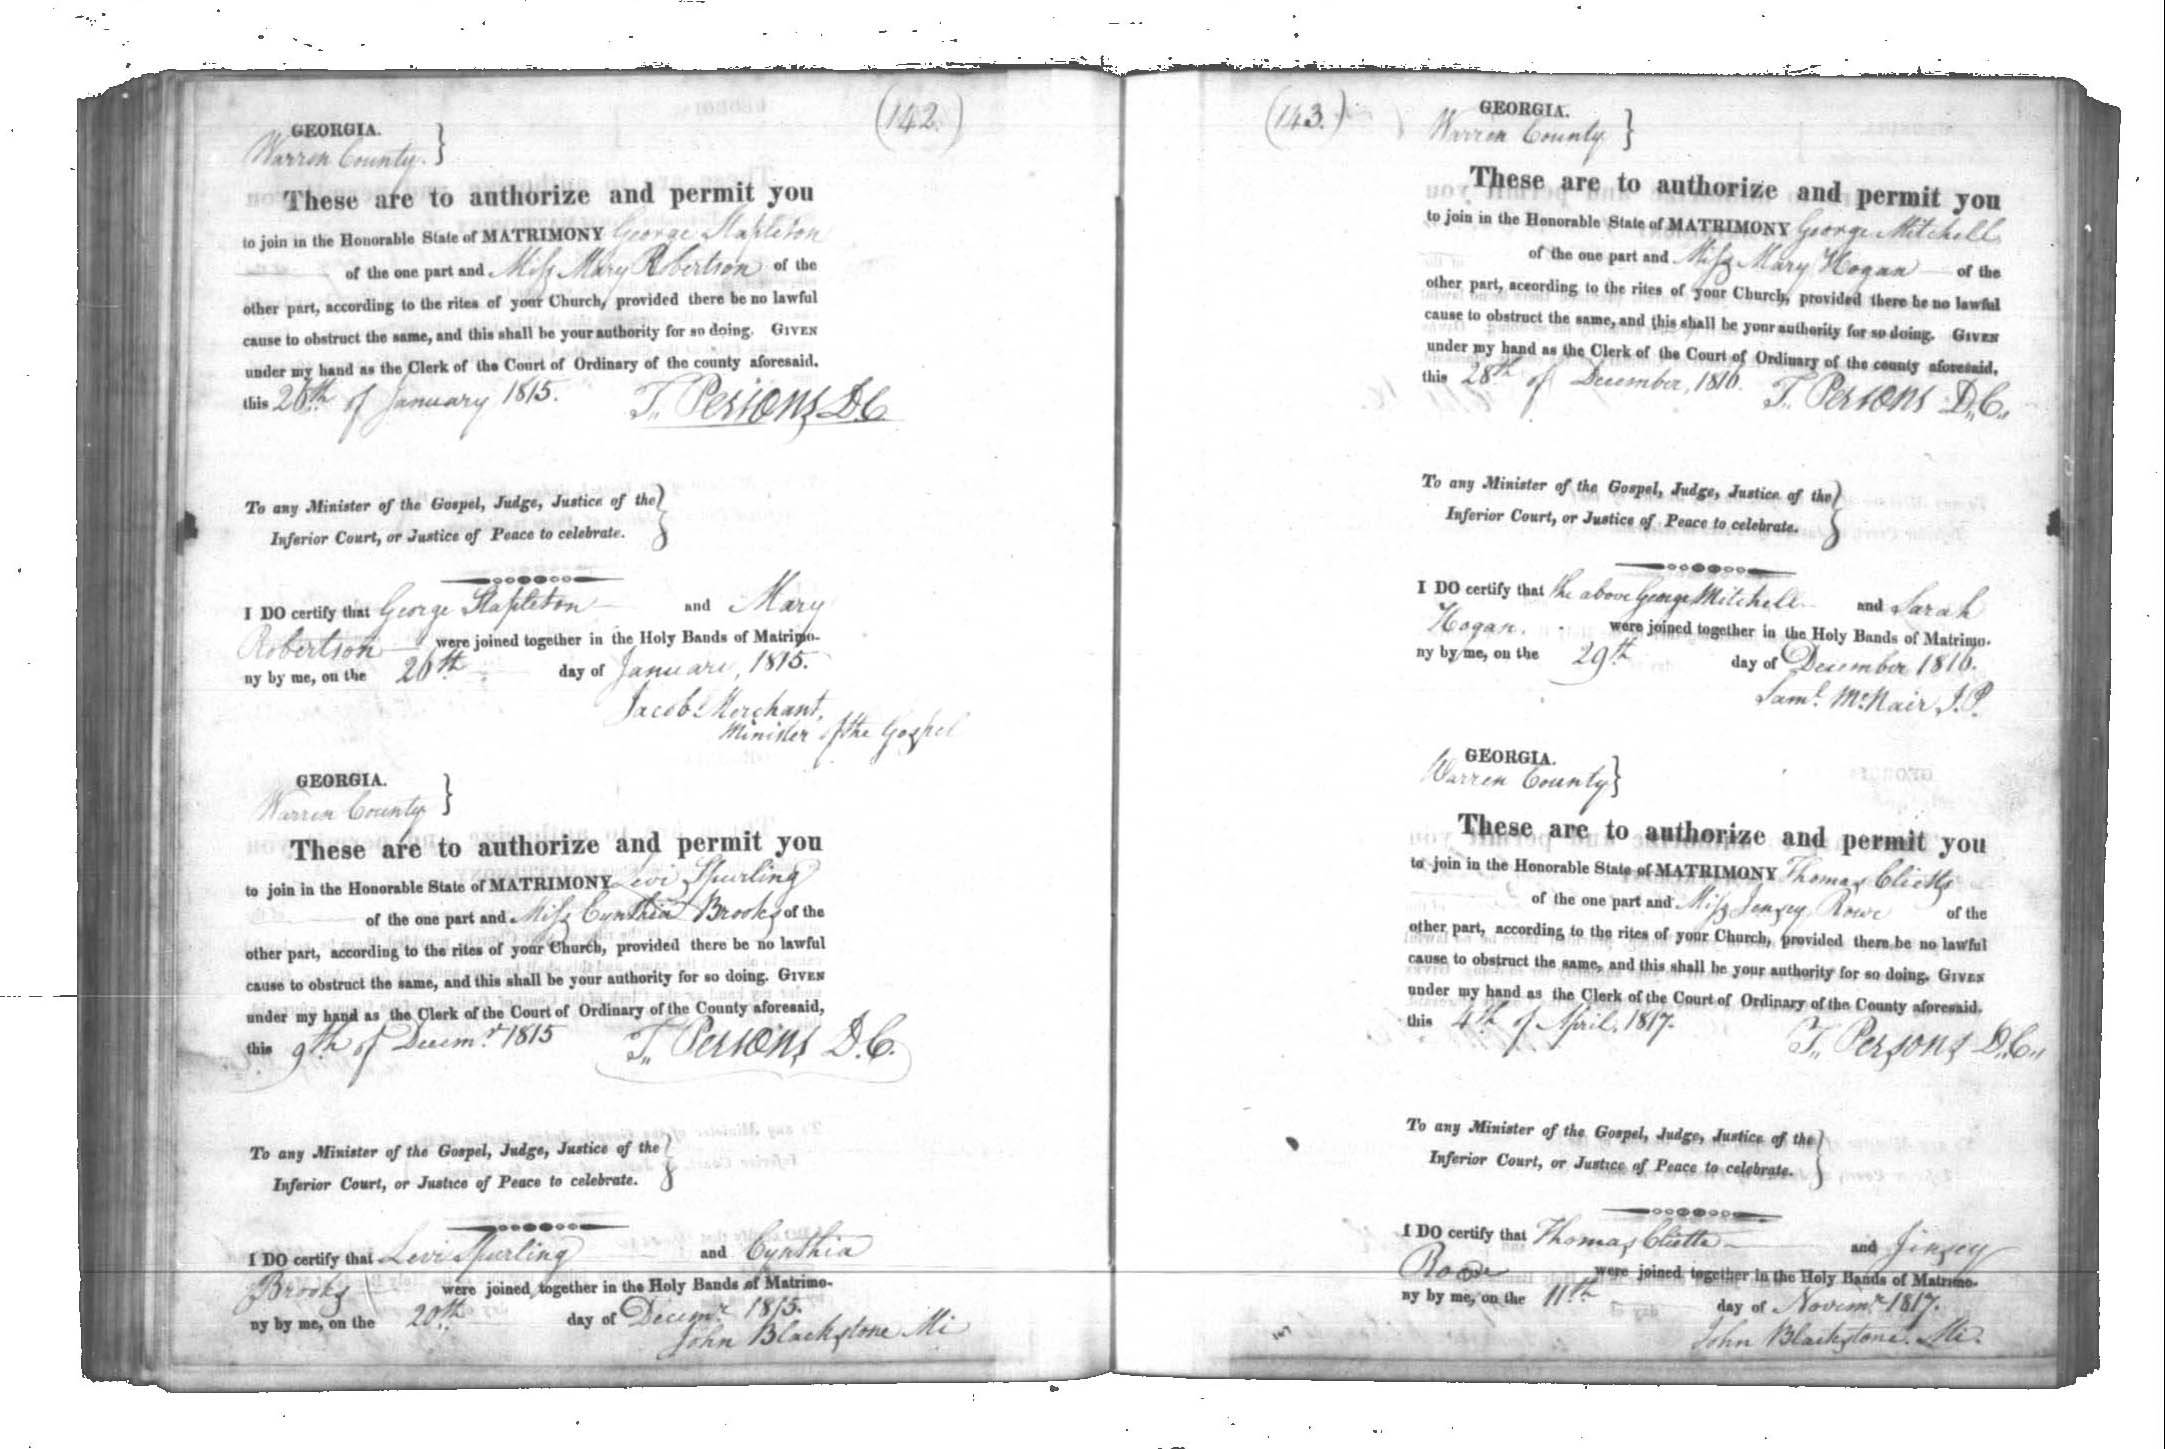 (142.)
GEORGIA.
Warren County. }
These are to authorize and permit you
to join in the Honorable State of MATRIMONY George Stapleton
of the one part and Miss Mary Robertson of the
other part, according to the rites of your Church, provided there be no lawful
cause to obstruct the same, and this shall be your authority for so doing. GIVEN
under my hand as the Clerk of the Court of Ordinary of the county aforesaid.
this 26th of January 1815. T. Persons D.C.
To any Minister of the Gospel, Judge, Justice of the }
Inferior Court, or Justice of Peace to celebrate.
I DO certify that George Stapleton and Mary
Robertson were joined together in the Holy Bands of Matrimo-
ny by me, on the 26th day of January, 1815.
Jacob Merchant,
Minister of the Gospel
GEORGIA.
Warren County }
These are to authorize and permit you
to join in the Honorable State of MATRIMONY Levi Spurling
of the one part and Miss Cynthia Brooks of the
other part, according to the rites of your Church, provided there be no lawful
cause to obstruct the same, and this shall be your authority for so doing. GIVEN
under my hand as the Clerk of the Court of Ordinary of the County aforesaid,
this 9th of Decemr. 1815 T. Persons D.C.
To any Minister of the Gospel, Judge, Justice of the }
Inferior Court, or Justice of Peace to celebrate.
I DO certify that Levi Spurling and Cynthia
Brooks were joined together in the Holy Bands of Matrimo-
ny by me, on the 20th day of Decemr 1815.
John Blackstone Mi
(143.)
GEORGIA.
Warren County }
These are to authorize and permit you
to join in the Honorable State of MATRIMONY George Mitchell
of the one part and Miss Mary Hogan of the
other part, according to the rites of your Church, provided there be no lawful
cause to obstruct the same, and this shall be your authority for so doing. GIVEN
under my hand as the Clerk of the Court of Ordinary of the county aforesaid,
this 28th of December, 1816. T. Persons D.C.
To any Minister of the Gospel, Judge, Justice of the }
Inferior Court, or Justice of Peace to celebrate.
I DO certify that the above George Mitchell and Sarah
Hogan. were joined together in the Holy Bands of Matrimo-
ny by me, on the 29th day of December 1816.
Saml. McNair J.P.
GEORGIA.
Warren County }
These are to authorize and permit you
to join in the Honorable State of MATRIMONY Thomas Cliette
of the one part and Miss Jensey Rowe of the
other part, according to the rites of your Church, provided there be no lawful
cause to obstruct the same, and this shall be your authority for so doing. GIVEN
under my hand as the Clerk of the Court of Ordinary of the County aforesaid.
this 4th of April, 1817. T. Persons D.C.
To any Minister of the Gospel, Judge, Justice of the }
Inferior Court, or Justice of Peace to celebrate.
I DO certify that Thomas Cliette and Jinsey
Rowe were joined together in the Holy Bands of Matrimo-
ny by me, on the 11th day of Novemr 1817.
John Blackstone. Mi.